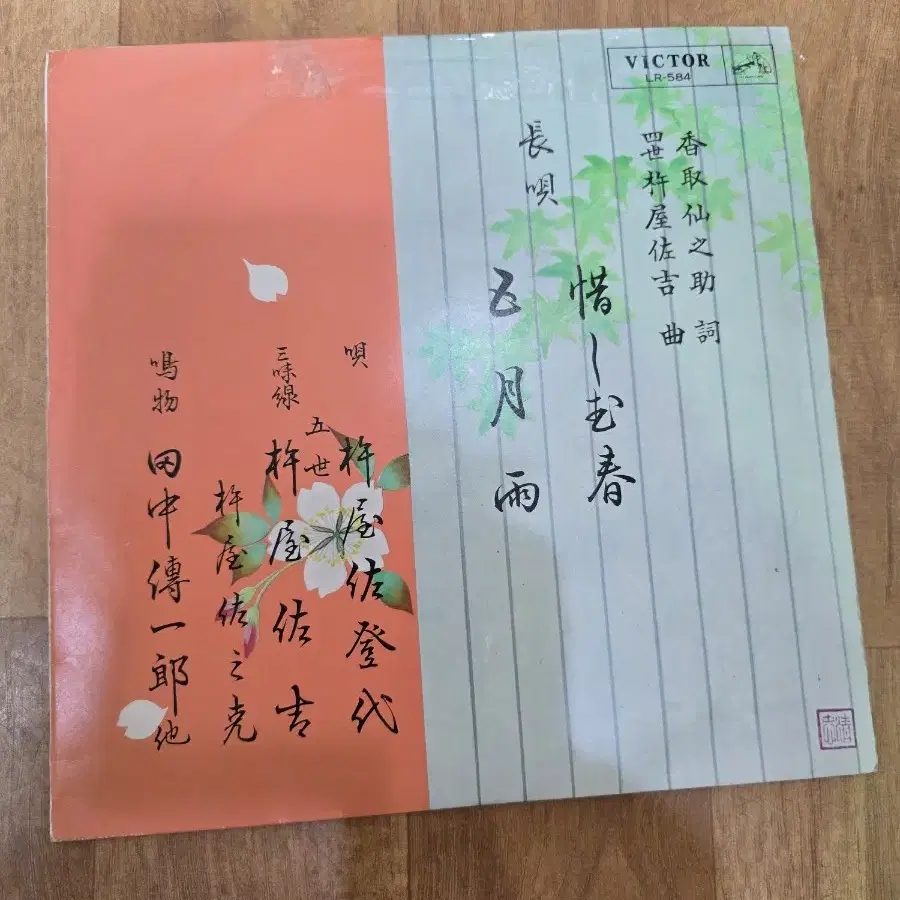 VICTOR
LR-584
香取仙之助 詞
四世杵屋佐吉 曲
長唄
惜しむ春
五月雨
唄 杵屋佐登代
三味線 五世 杵屋佐吉
杵屋佐之克
鳴物 田中傳一郎 他